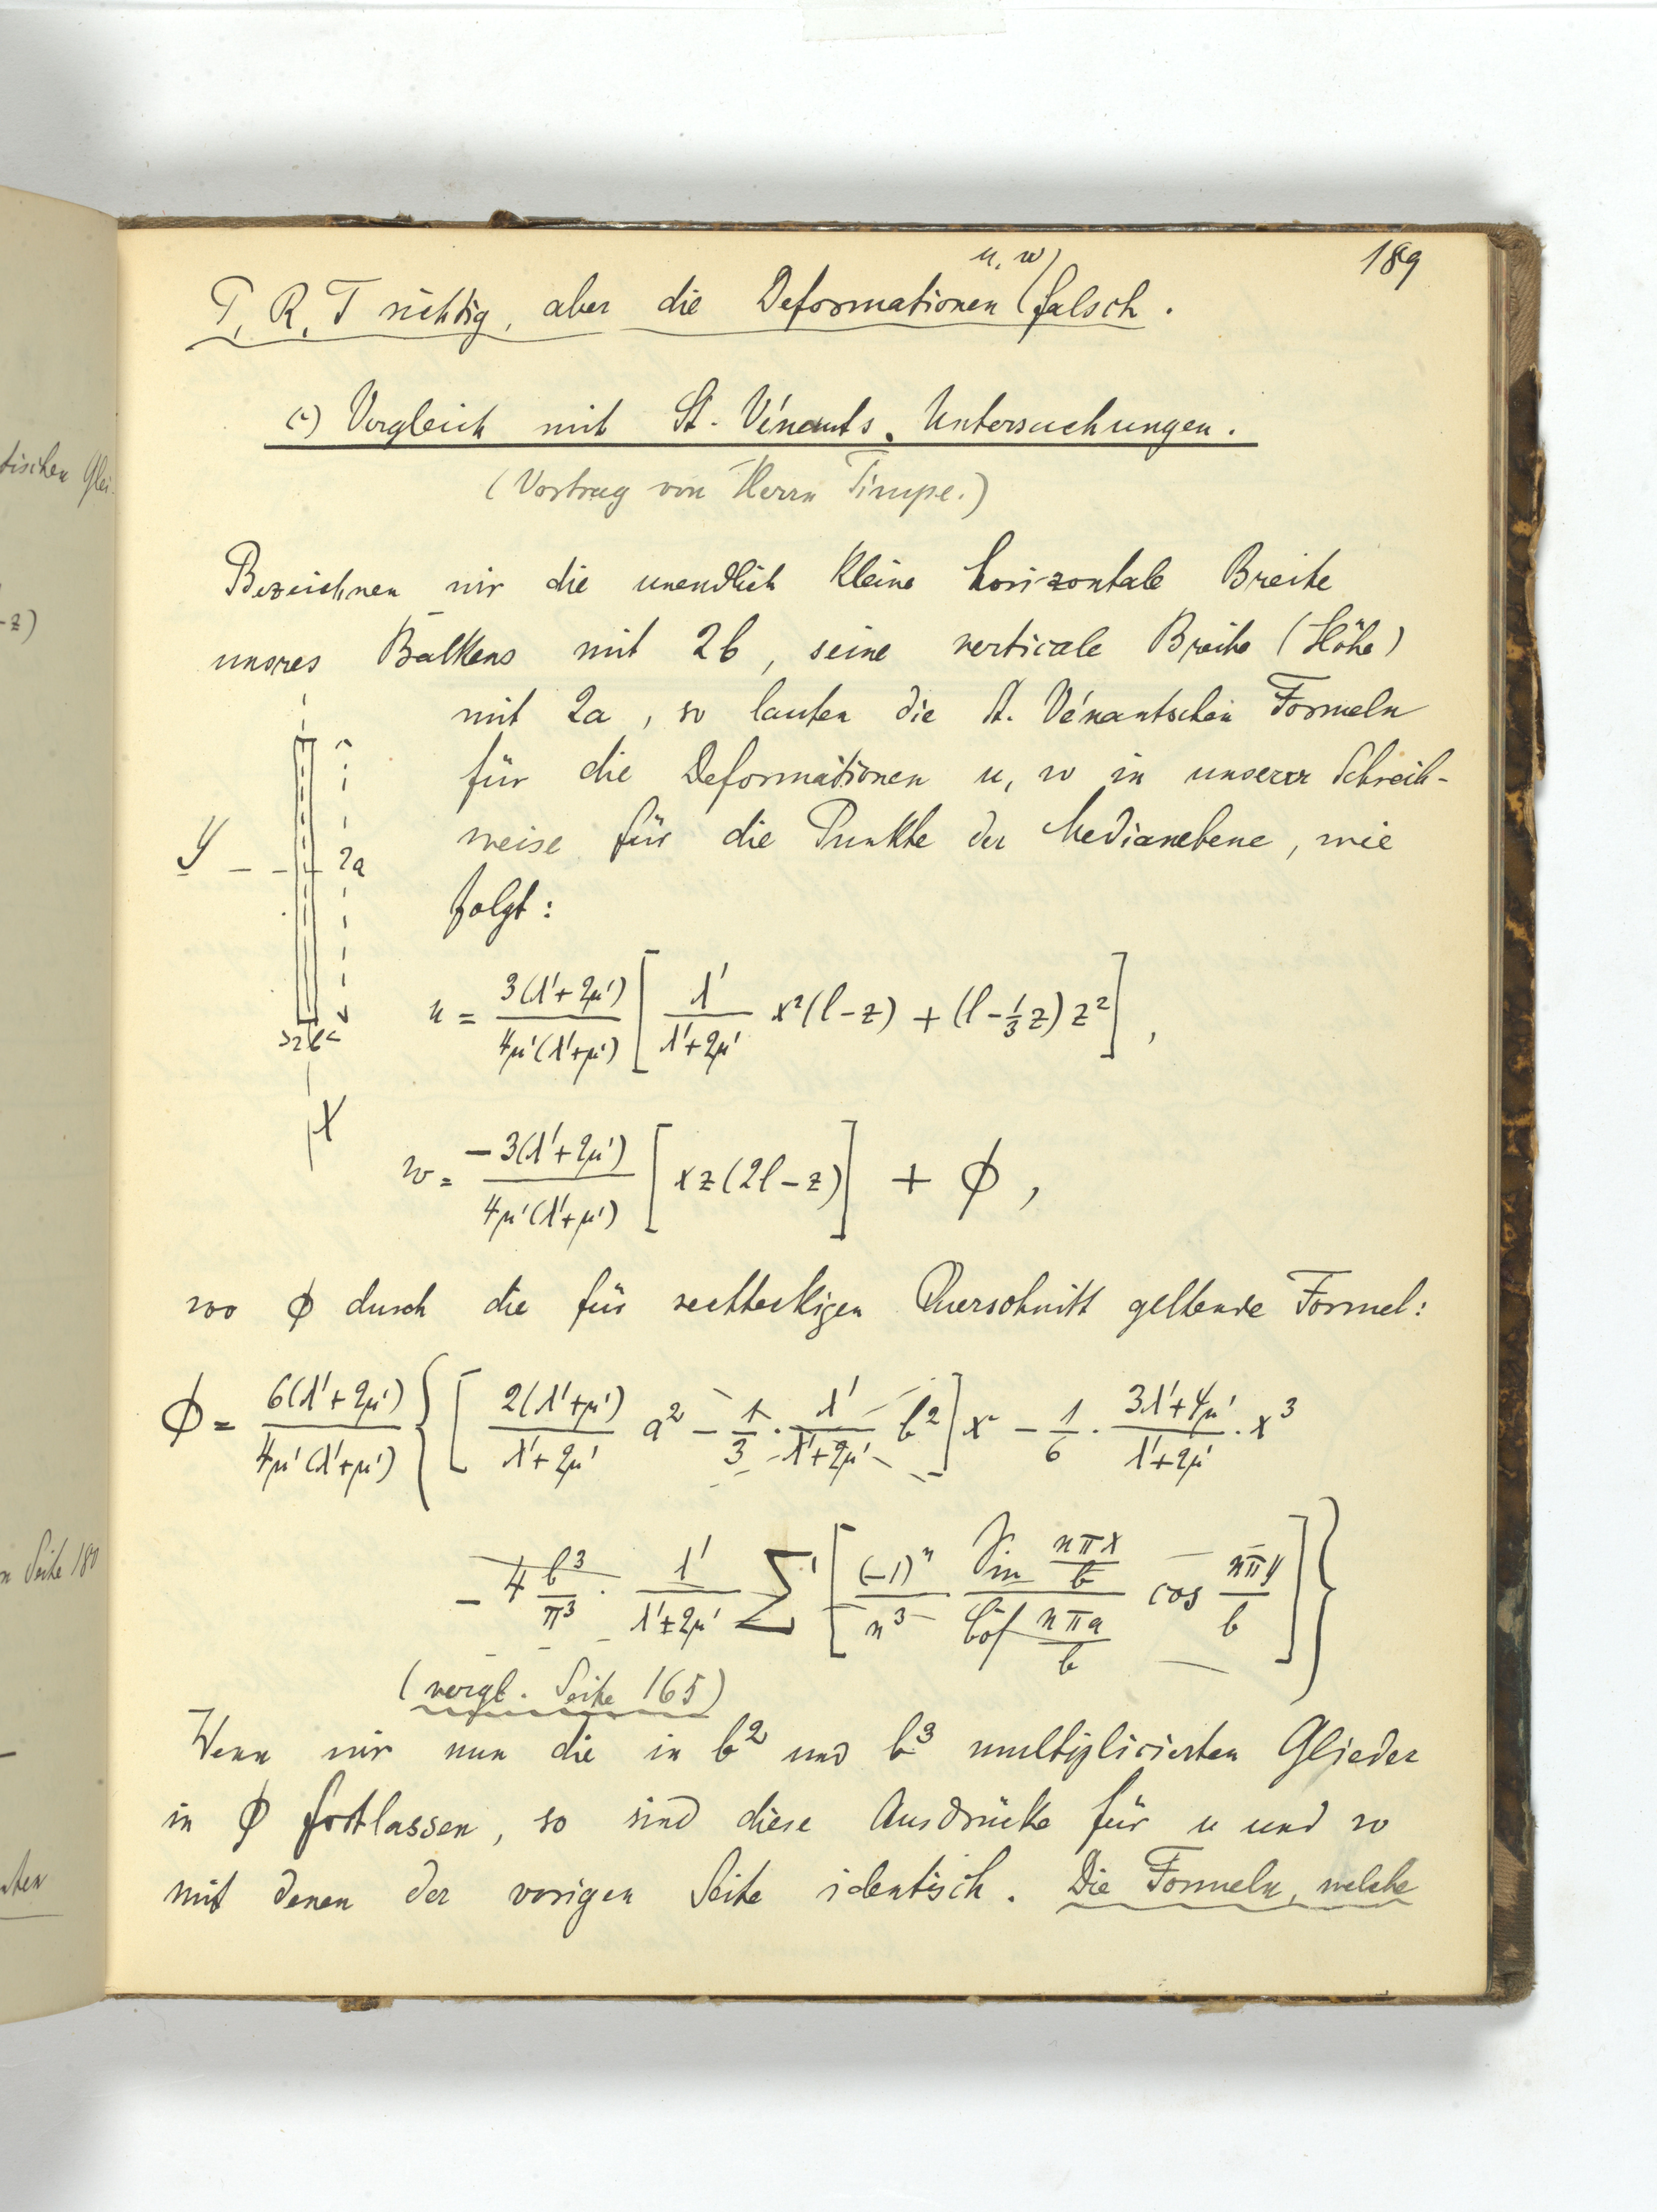 189
u, w
P, R, T richtig, aber die Deformationen falsch.
c) Vergleich mit St. Vénants Untersuchungen.
(Vortrag von Herrn Timpe.)
Bezeichnen wir die unendlich kleine horizontale Breite
unsres Balkens mit 2b, seine verticale Breite (Höhe)
mit 2a, so lauten die St. Vénantschen Formeln
für die Deformationen u, w in unserer Schreib-
weise für die Punkte der Medianebene, wie
folgt:
y
2a
2b
X
u = \frac{3(λ'+2μ')}{4μ'(λ'+μ')} [ \frac{λ'}{λ'+2μ'} x²(l-z) + (l-\frac{1}{3}z) z² ],
w = \frac{-3(λ'+2μ')}{4μ'(λ'+μ')} [ xz(2l-z) ] + ϕ,
wo ϕ durch die für rechteckigen Querschnitt geltende Formel:
ϕ = \frac{6(λ'+2μ')}{4μ'(λ'+μ')} { [ \frac{2(λ'+μ')}{λ'+2μ'} a² - \frac{1}{3} · \frac{λ'}{λ'+2μ'} b² ] x - \frac{1}{6} · \frac{3λ'+4μ'}{λ'+2μ'} · x³
- 4 \frac{b³}{π³} · \frac{λ'}{λ'+2μ'} Σ' [ \frac{(-1)^n}{n³} \frac{Sin \frac{nπx}{b}}{Cof \frac{nπa}{b}} cos \frac{nπy}{b} ] }
(vergl. Seite 165)
Wenn wir nun die in b² und b³ multiplicierten Glieder
in ϕ fortlassen, so sind diese Ausdrücke für u und w
mit denen der vorigen Seite identisch. Die Formeln, welche